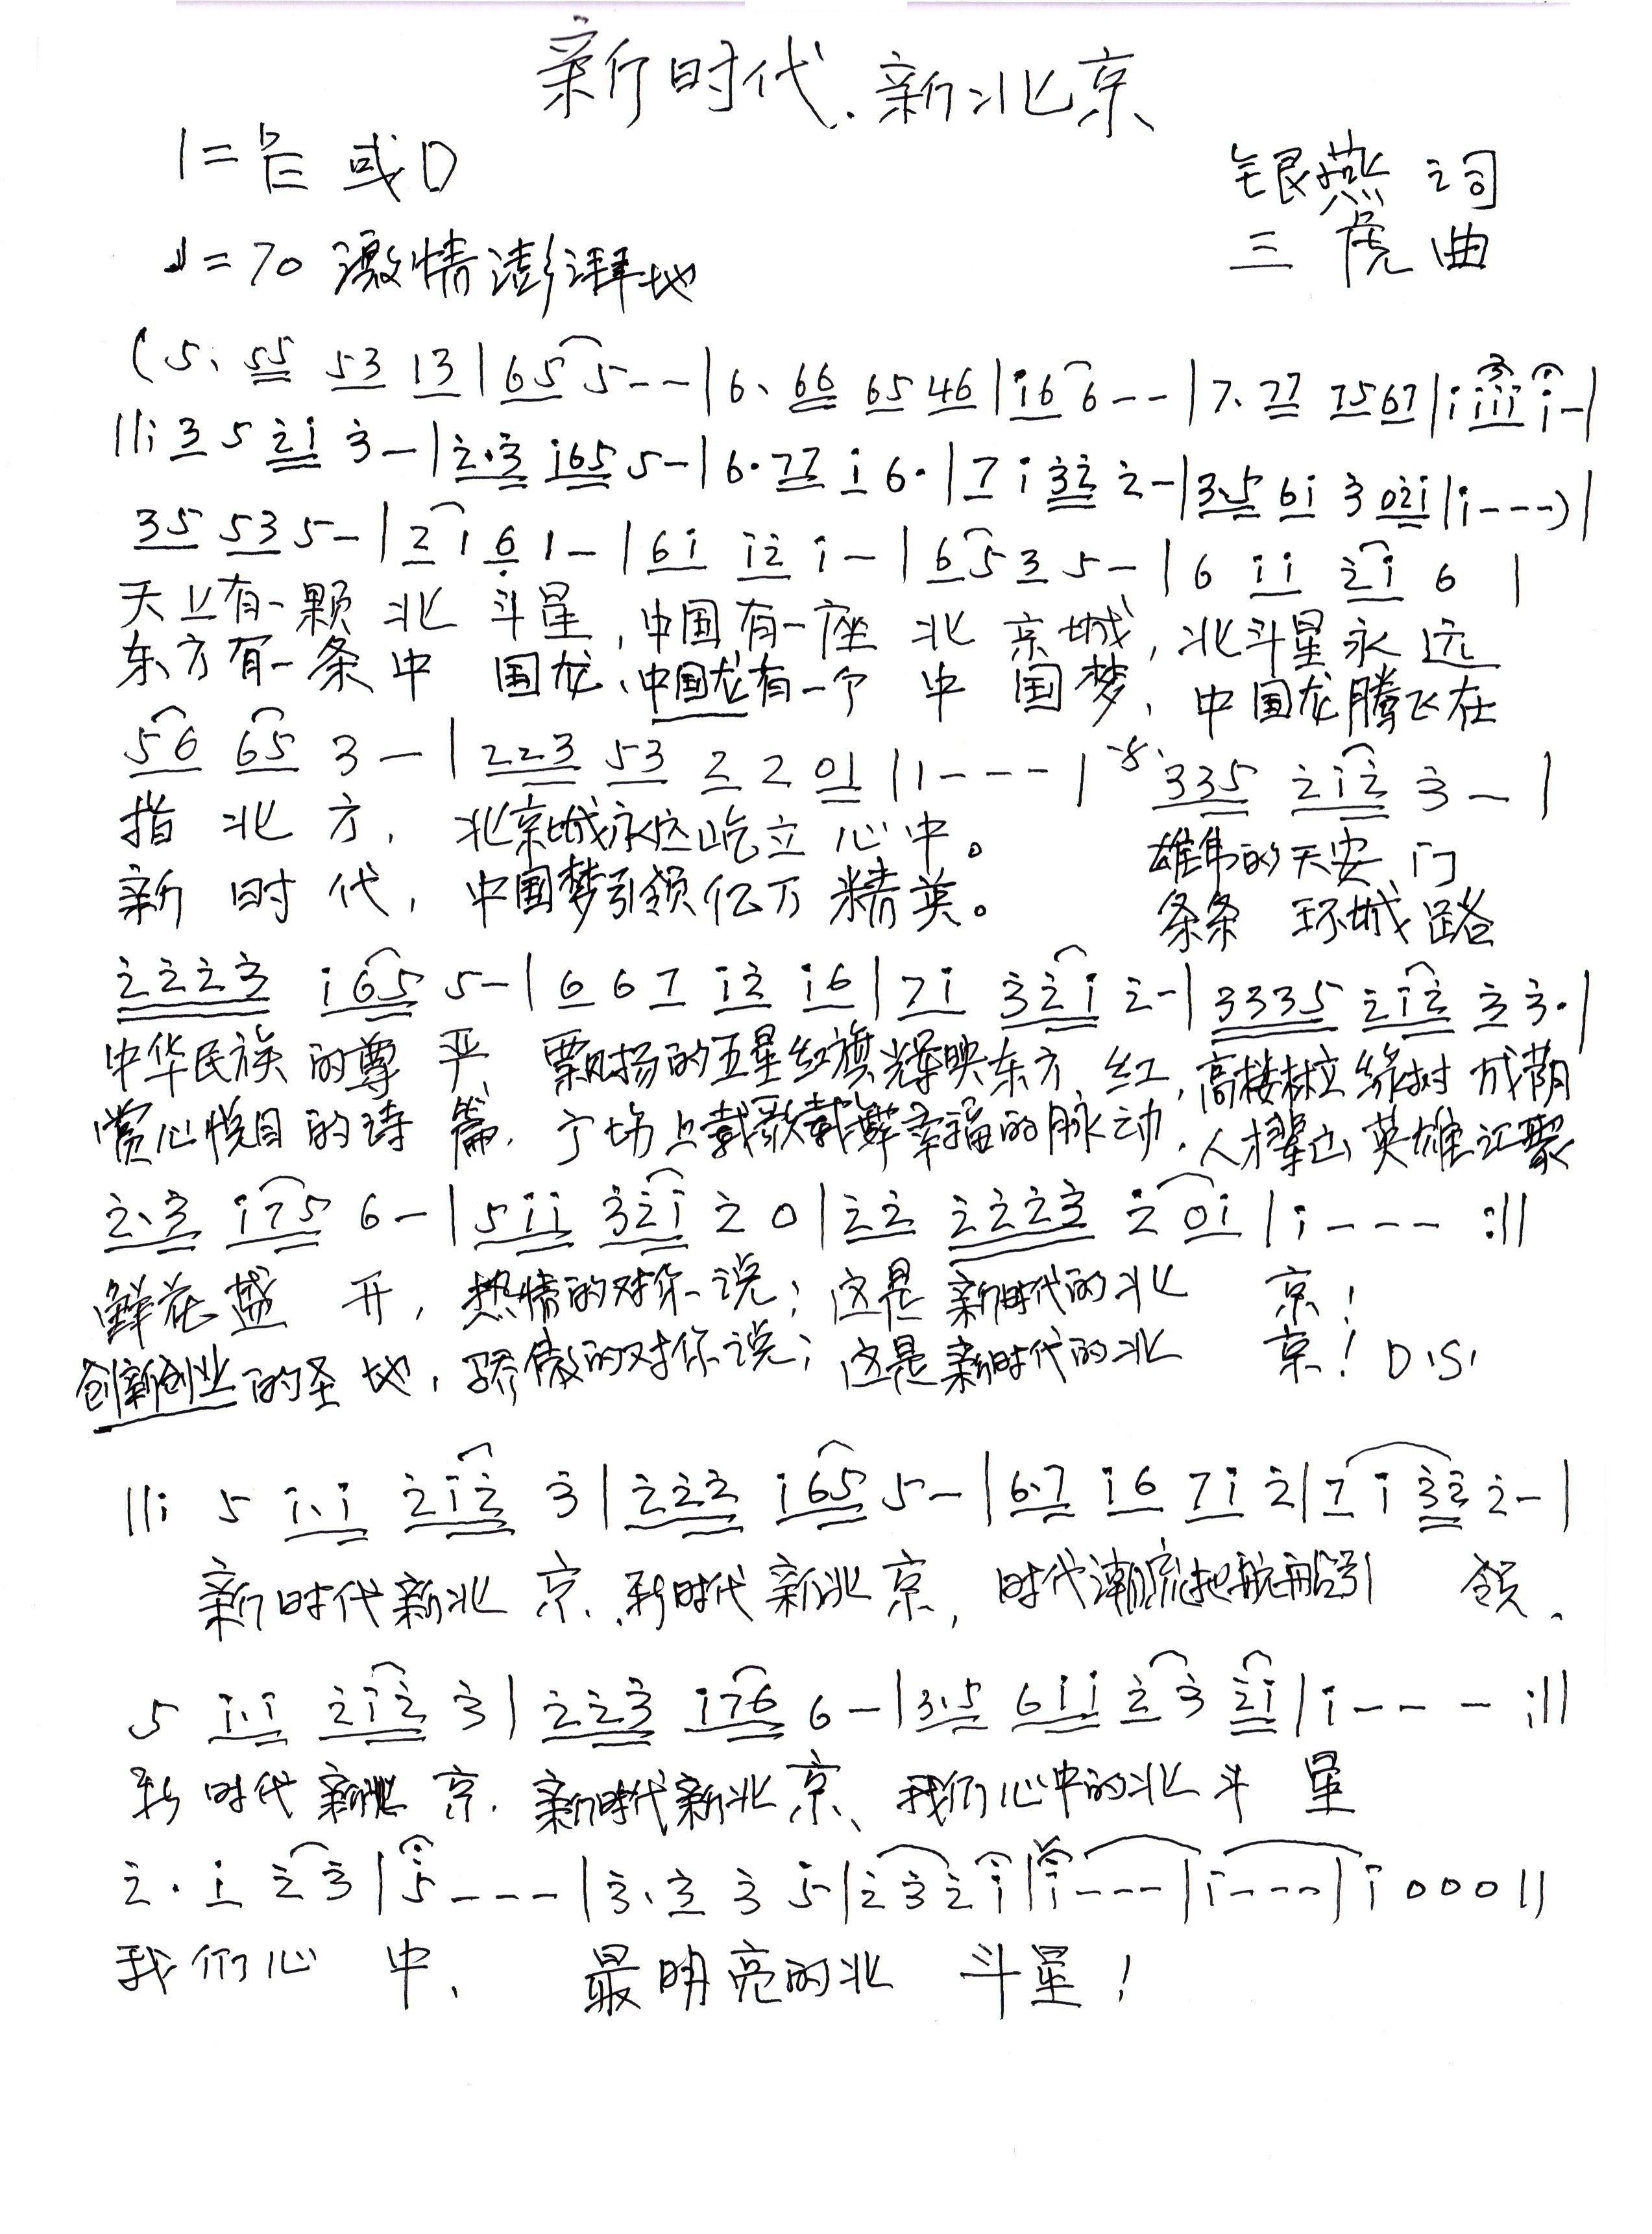 新时代.新北京
1=♭E 或D
银燕 词
♩=70 激情澎湃地
三虎 曲
(5. 55 53 13|65 5--|6. 66 65 46|i6 6--|7. 77 75 67|i iii i-|
||: 3 5 2i 3-|2.3 i65 5-|6.77 i 6.|7 i 32 2-|3.5 6i 3 02i|i---)|
35 53 5-|2 1 6 1-|6i i2 i-|6 5 3 5-|6 ii 2i 6|
天上有一颗 北 斗星,中国有一座 北 京城,北斗星永远
东方有一条中 国龙、中国龙有一个 中 国梦,中国龙腾飞在
56 65 3-|223 53 2 2 01|1---| 335 2i2 3-|
指 北 方, 北京城永远屹立 心中。 雄伟的天安门
新 时 代, 中国梦引领亿万 精英。 条条 环城路
2223 i65 5-|6 6 7 i2 i6|7i 32i 2-|3335 2i2 3 3.|
中华民族的尊 严 飘扬的五星红旗辉映东方红,高楼林立绿树成荫
赏心悦目的诗 篇. 广场上载歌载舞幸福的脉动.人才辈出英雄汇聚
2.3 i75 6-|5ii 32i 2 0|22 2223 2 0i|i--- :||
鲜花盛 开, 热情的对你说;这是新时代的北 京!
创新创业的圣地,骄傲的对你说;这是新时代的北 京! D.S.
||: 5 i.i 2i2 3|222 i65 5-|6.7 i6 7i 2|7 i 32 2-|
新时代新北 京.新时代新北京, 时代潮流起航船引 领.
5 i.i 2i2 3|223 i76 6-|3.5 6ii 2 3 2i|i--- :||
新时代新北 京.新时代新北京、我们心中的北斗 星
2. i 2 3|5---|3. 3 3 5|2 3 2 i|i---|i---|i 000||
我们心 中、 最明亮的北 斗星!